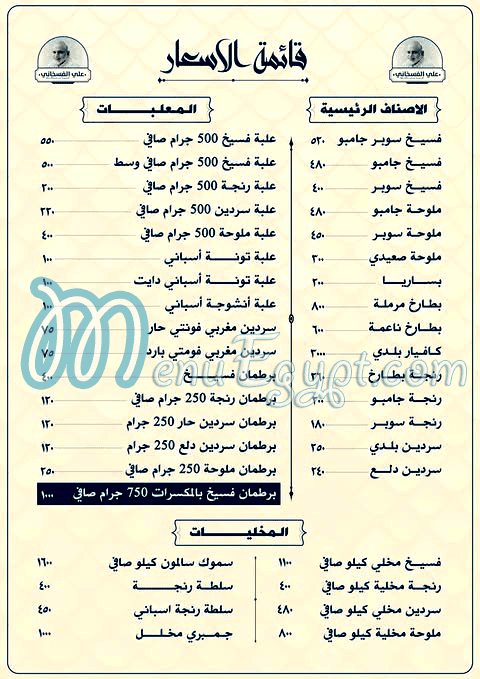 قائمة الاسعار
علي الفسخاني
علي الفسخاني
الاصناف الرئيسية
فسيخ سوبر جامبو ٥٢٠
فسيخ جامبو ٤٨٠
فسيخ سوبر ٤٠٠
ملوحة جامبو ٤٨٠
ملوحة سوبر ٤٥٠
ملوحة صعيدي ٣٠٠
بساريا ٢٠٠
بطارخ مرملة ٨٠٠
بطارخ ناعمة ٦٠٠
كافيار بلدي ٣٠٠٠
رنجة بطارخ
رنجة جامبو ٢٠٠
رنجة سوبر ١٨٠
سردين بلدي ٢٥٠
سردين دلع ٢٤٠
المعلبات
علبة فسيخ 500 جرام صافي ٥٥٠
علبة فسيخ 500 جرام صافي وسط ٥٠٠
علبة رنجة 500 جرام صافي ٢٠٠
علبة سردين 500 جرام صافي ٢٢٠
علبة ملوحة 500 جرام صافي ٤٠٠
علبة تونة أسباني ١٠٠
علبة تونة أسباني دايت ١٠٠
علبة أنشوجة أسباني ١٠٠
سردين مغربي فونتي حار ٧٥
سردين مغربي فومتي بارد ٧٥
برطمان فسيخ ٤٠٠
برطمان رنجة 250 جرام صافي ١٢٠
برطمان سردين حار 250 جرام ١٢٠
برطمان سردين دلع 250 جرام ١٢٠
برطمان ملوحة 250 جرام صافي ٢٥٠
برطمان فسيخ بالمكسرات 750 جرام صافي ١٠٠٠
MenuEgypt.com
المخليات
فسيخ مخلي كيلو صافي ١١٠٠
رنجة مخلية كيلو صافي ٤٠٠
سردين مخلي كيلو صافي ٤٨٠
ملوحة مخلية كيلو صافي ٨٠٠
سموك سالمون كيلو صافي ١٦٠٠
سلطة رنجة ٤٠٠
سلطة رنجة اسباني ٤٥٠
جمبري مخلل ١٠٠٠